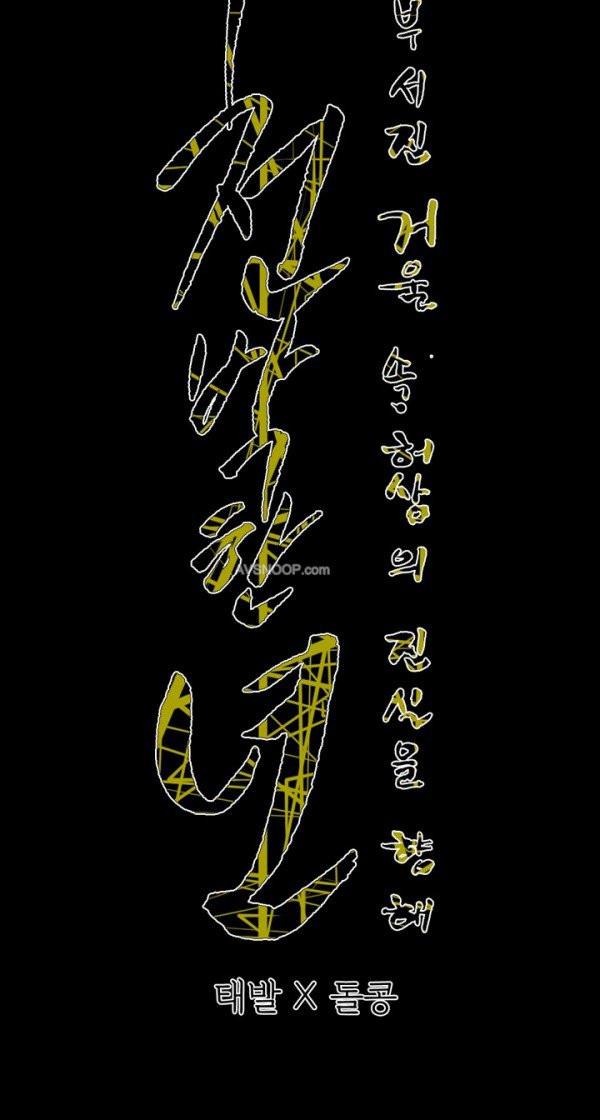 천박한 년
부서진 거울 속 허상의 진실을 향해
AVSNOOP.com
태발 X 돌콩